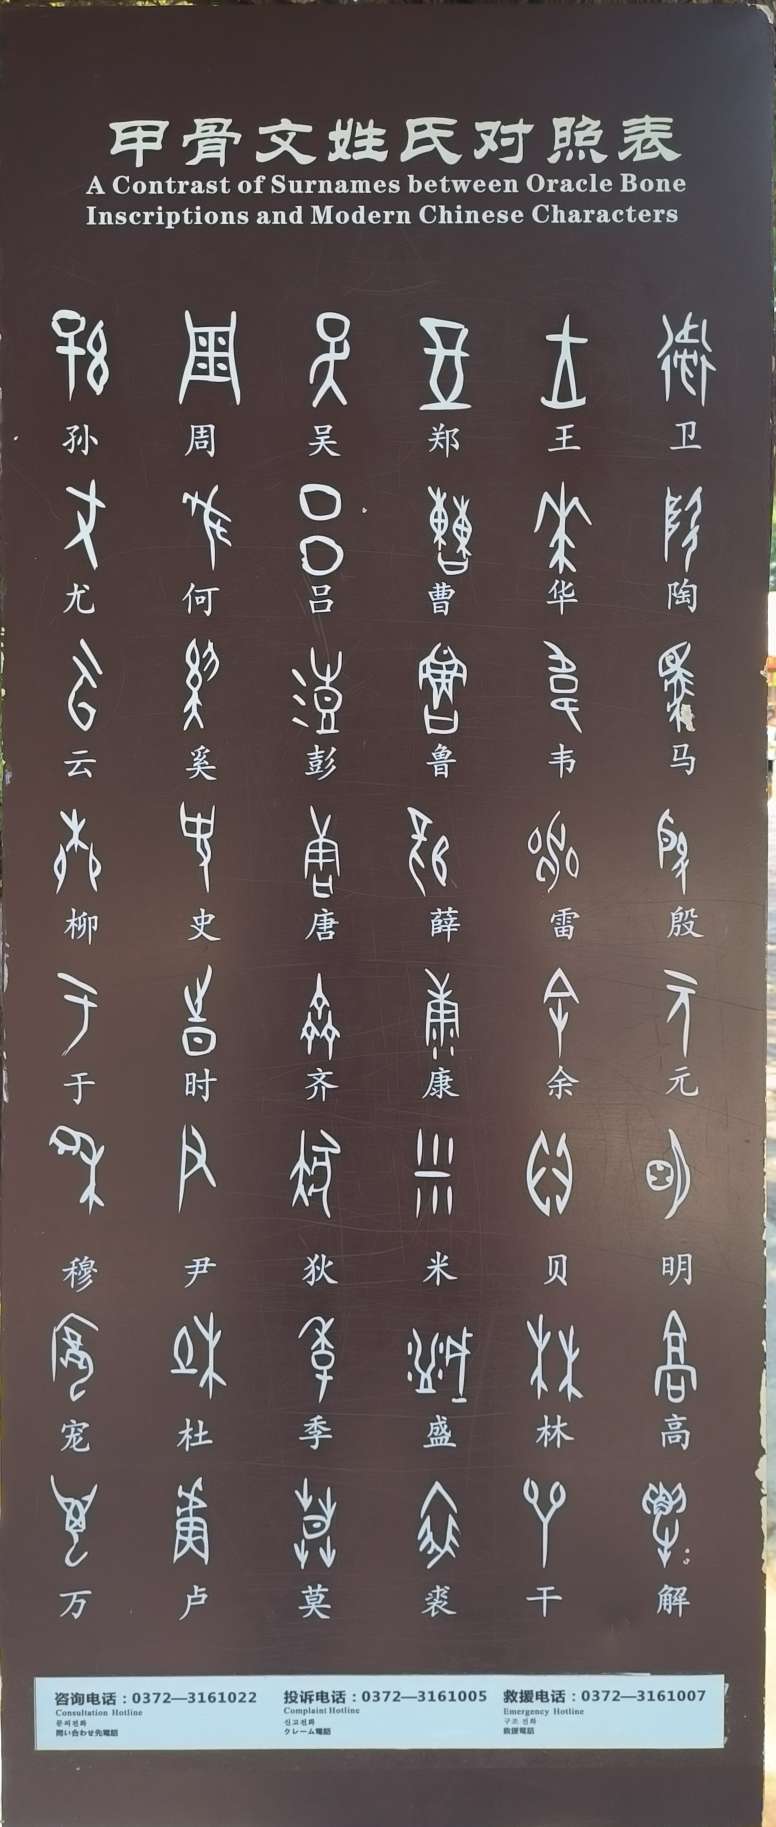 甲骨文姓氏对照表
A Contrast of Surnames between Oracle Bone
Inscriptions and Modern Chinese Characters
孙 周 吴 郑 王 卫
尤 何 吕 曹 华 陶
云 奚 彭 鲁 韦 马
柳 史 唐 薛 雷 殷
于 时 齐 康 余 元
穆 尹 狄 米 贝 明
宠 杜 季 盛 林 高
万 卢 莫 裘 干 解
咨询电话：0372—3161022 投诉电话：0372—3161005 救援电话：0372—3161007
Consultation Hotline Complaint Hotline Emergency Hotline
문의전화 신고전화 구조 전화
問い合わせ先電話 クレーム電話 救援電話